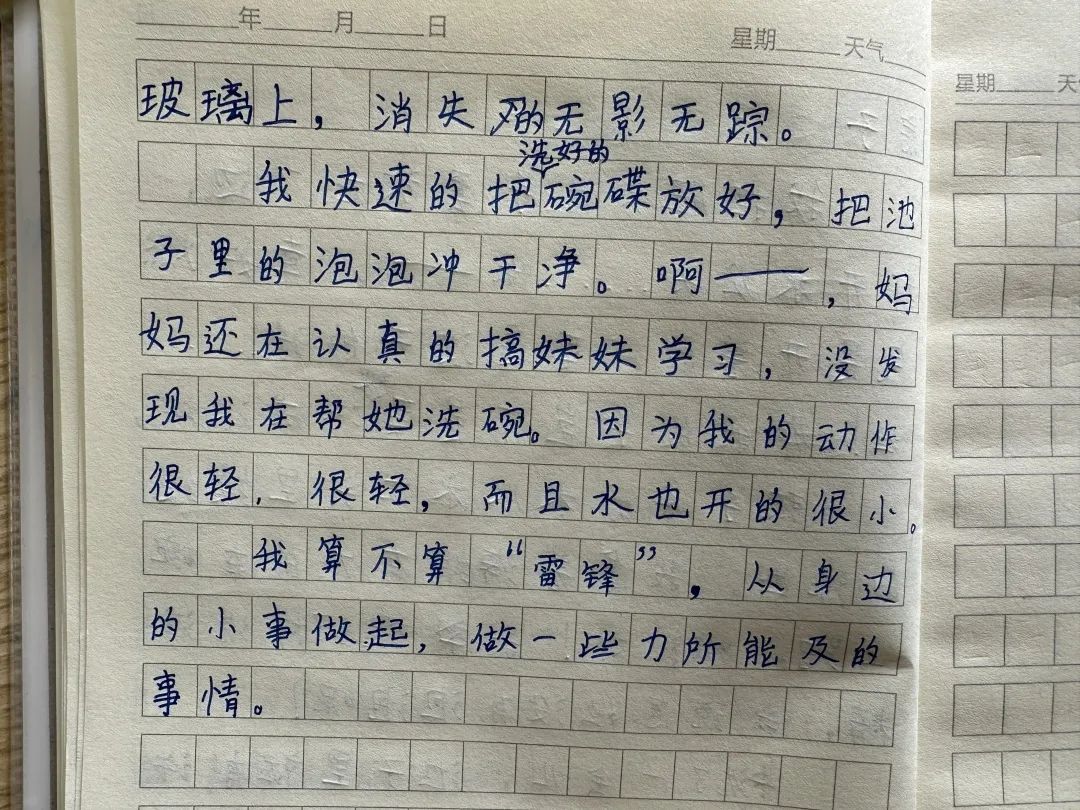 年 月 日 星期 天气
玻璃上，消失的无影无踪。
洗好的
我快速的把碗碟放好，把池
子里的泡泡冲干净。啊——，妈
妈还在认真的搞妹妹学习，没发
现我在帮她洗碗。因为我的动作
很轻，很轻，而且水也开的很小。
我算不算“雷锋”，从身边
的小事做起，做一些力所能及的
事情。
星期 天